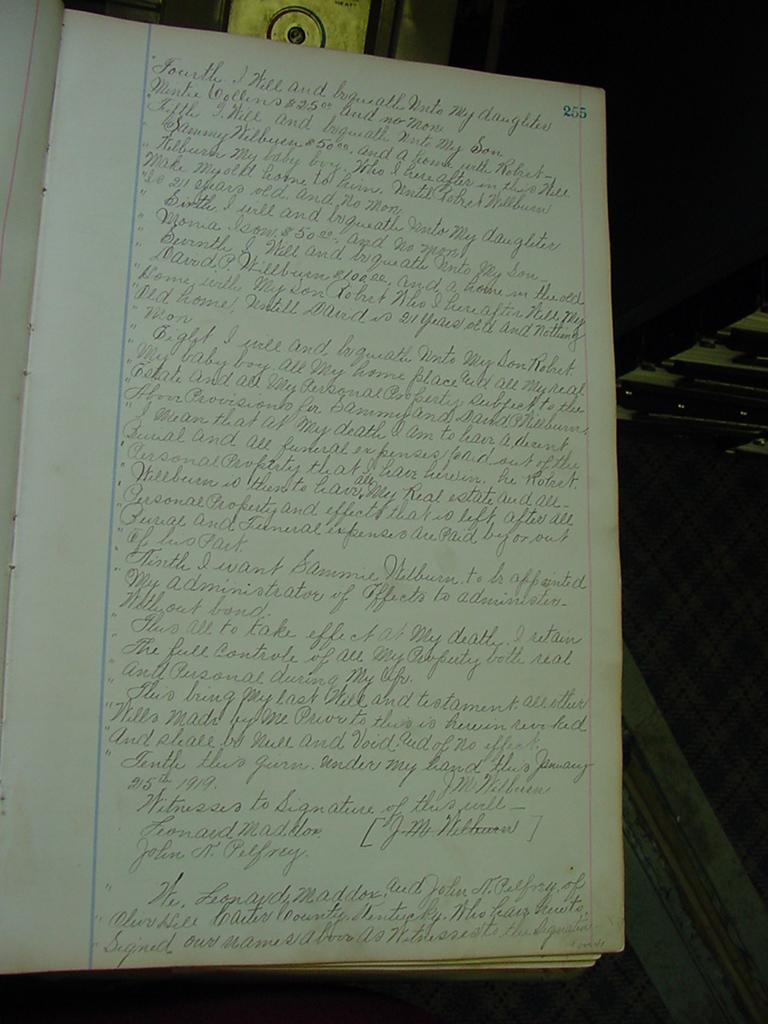 255
"Fourth, I Will and bequeath Unto My daughter
Mintie Collins $25.00 and no mon
"Fifth I Will and bequeath Unto My Son
"Sammy Wilburn $50.00. and a home with Robret
"Wilburn My baby boy, Who I here after in this Will
"Make My old home to him. Until Robret Willburn
"Is 21 years old. and No Mon,
" Sixth, I will and bequeath Unto My daughter
" Moma Ison, $50.00, and No mon
" Seventh, I Will and bequeath Unto My Son
" David, P. Willburn $100.00. and, a home in the old
"Home, with My Son Robret Who I here after Will, My
"Old home, Untill David is 21 years old and Nothing
" Mon
" Eight I will and, bequeath Unto My Son Robret.
"My baby boy. All My home place and all My real
"Estate and all My Personal Property subject to the
"Above Provisions for Sammy and David P Wilburn,
" I Mean that at My death I am to have a decent
"Burial and all funeral expenses Paid out of the
"Personal Property that I have herein, he Robret.
" Willburn is then to have all My Real estate and all
"Personal Property and effects that is left after all
"Burial and Funeral expenses are Paid by or out
"Of his Part.
" Ninth I want Sammie Wilburn, to be appointed
"My administrator of Effects to administer
"Without bond.
" This all to take effect at My death, I retain
"The full Controle of all My Property both real
"And Personal during My life.
" This being My last Will and testament all other
"Wills Made by Me Prior to this is herein revoked
"And shall be Null and Void and of No effect.
" Tenth this given. under my hand this January
25th 1919. J M Wilburn
Witnesses to Signature of this will
Leonard Maddox [J. M. Wilburn]
John N. Pelfrey.
" We, Leonard, Maddox, and John N. Pelfrey, of
"Olive Hill Carter County, Kentucky. Who have hereto,
"Signed our names above as Witnesses to the Signature